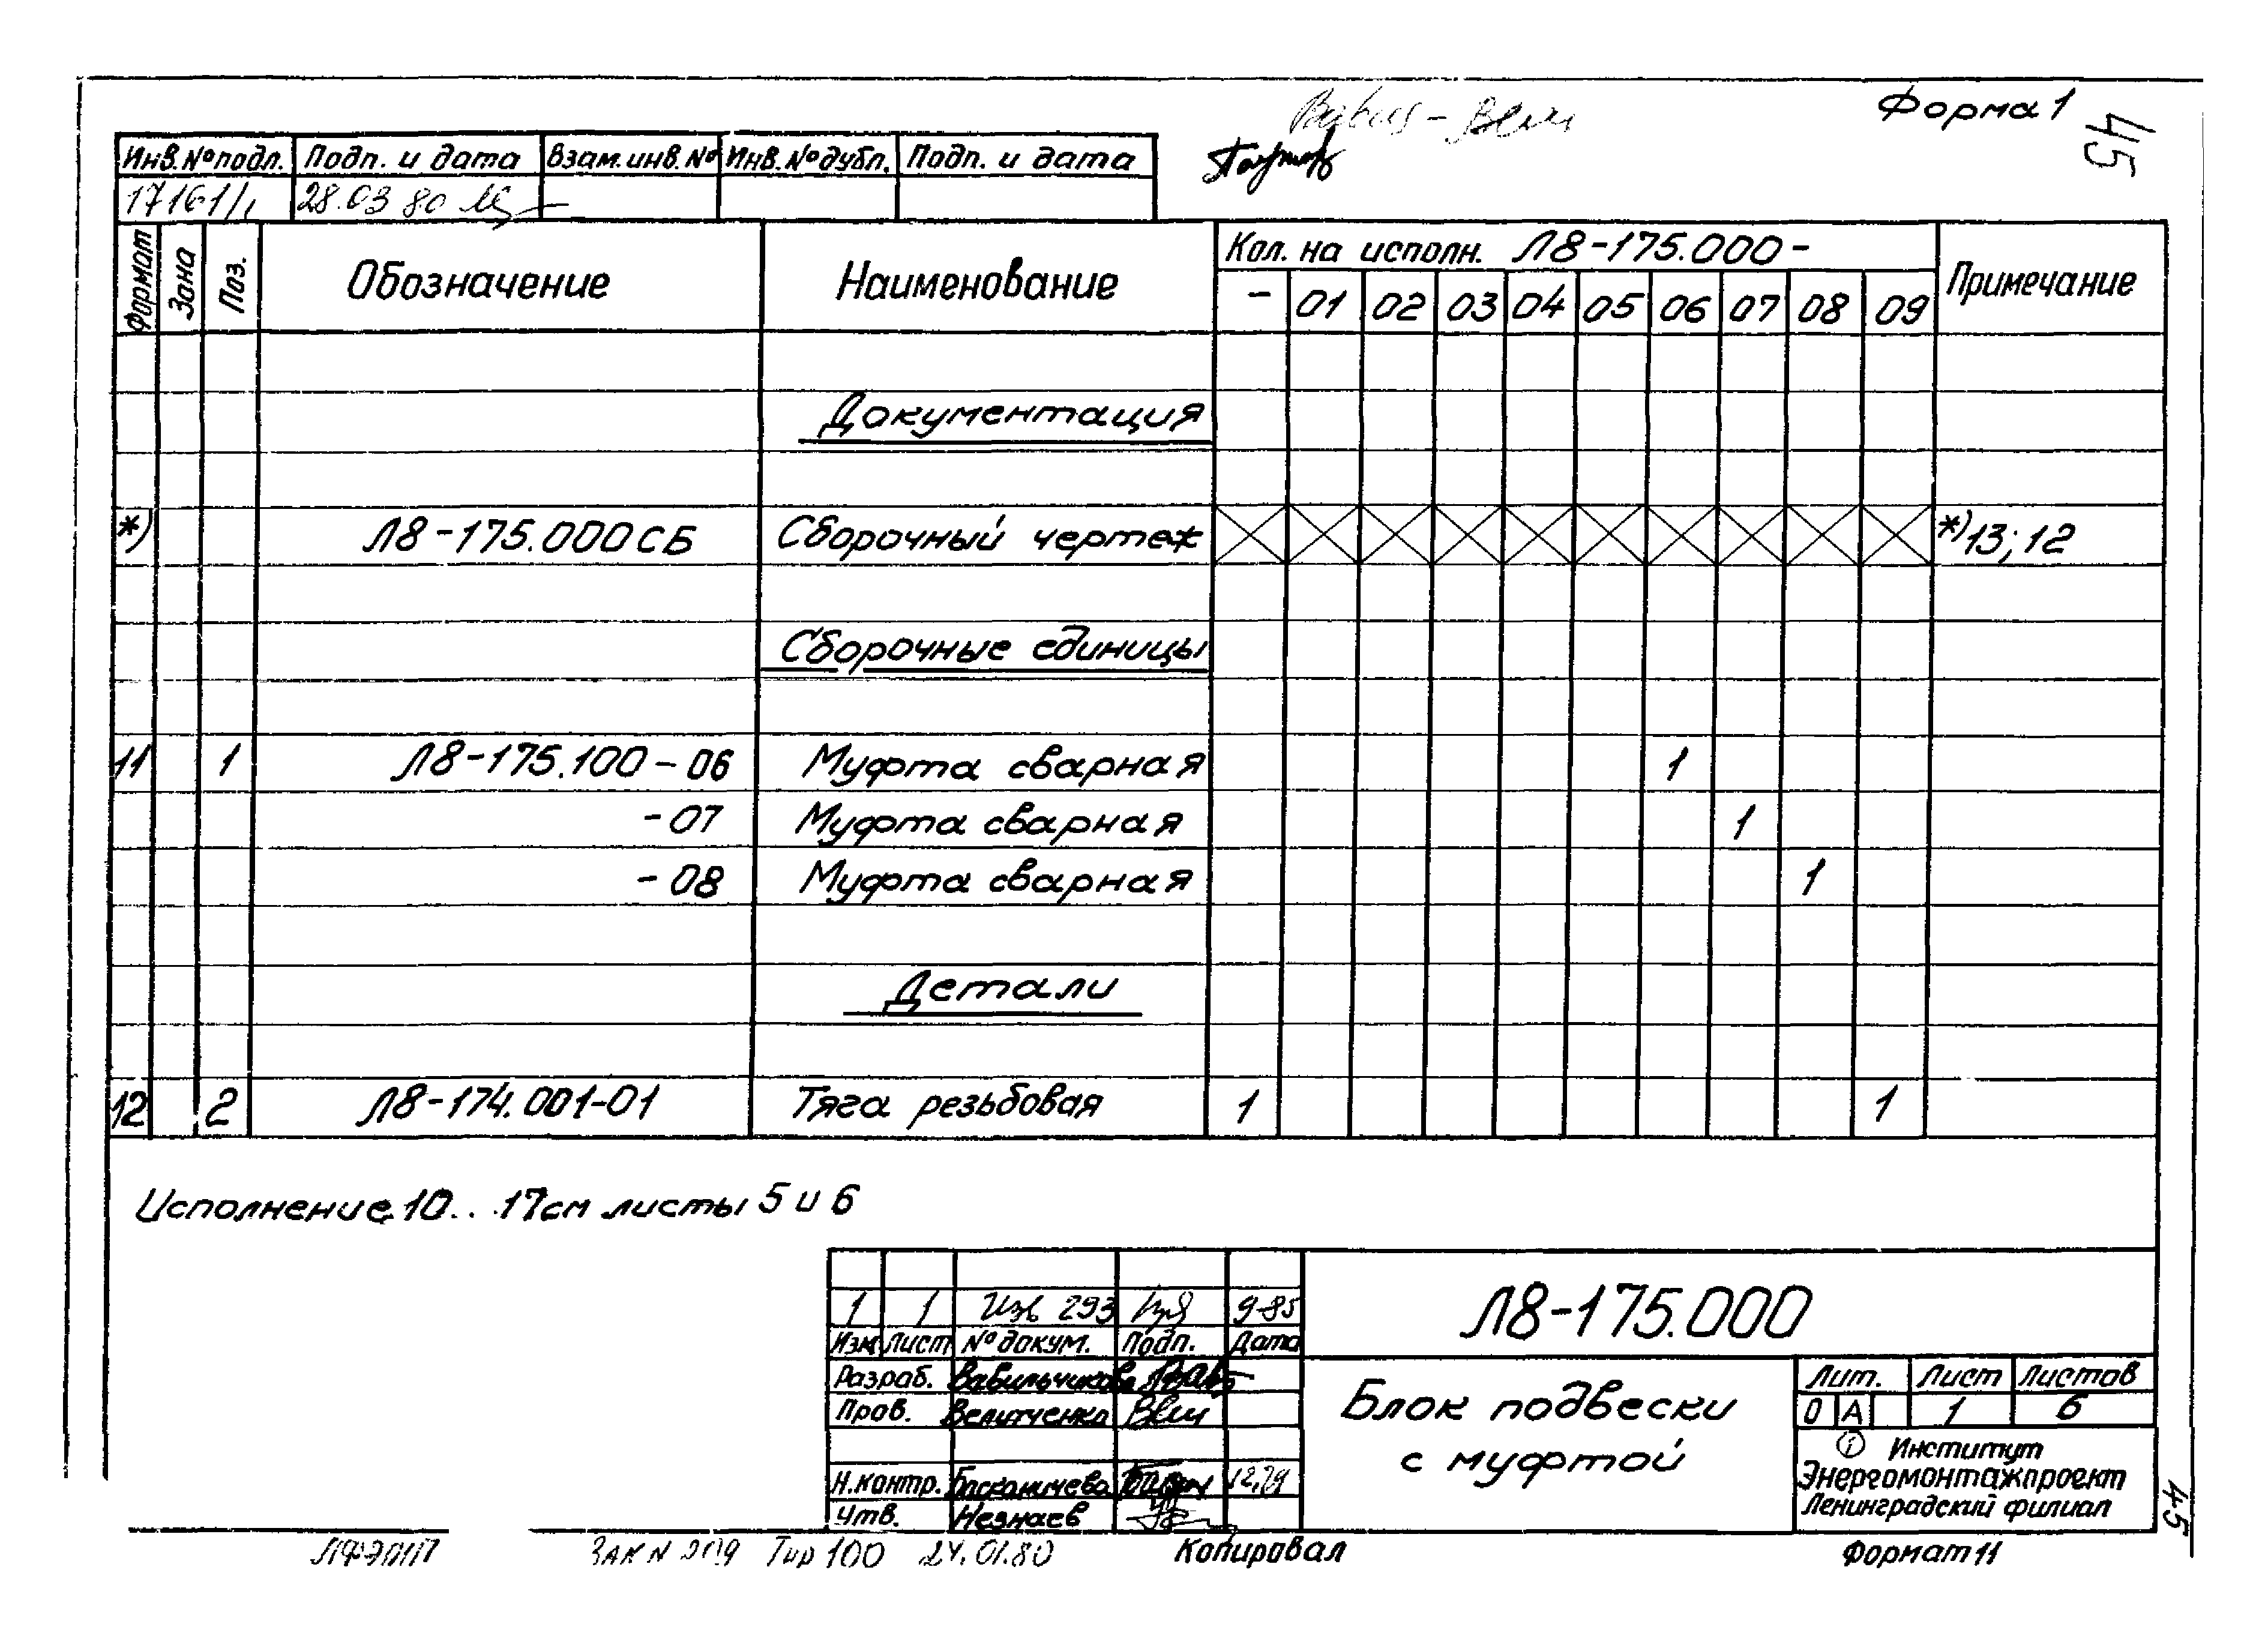 Форма 1
45
Инв.№подл. Подп. и дата Взам.инв.№ Инв.№дубл. Подп. и дата
17161/1 28.03 80
Формат Зона Поз. Обозначение Наименование Кол. на исполн. Л8-175.000- Примечание
- 01 02 03 04 05 06 07 08 09
Документация
*) Л8-175.000СБ Сборочный чертеж *)13; 12
Сборочные единицы
11 1 Л8-175.100-06 Муфта сварная 1
-07 Муфта сварная 1
-08 Муфта сварная 1
Детали
12 2 Л8-174.001-01 Тяга резьбовая 1 1
Исполнение 10...17см листы 5 и 6
1 1 Изв 293 9-85
Изм Лист №докум. Подп. Дата
Разраб. Вавильчикова
Пров. Велитченко
Н.контр. 12.79
Утв. Незнаев
Л8-175.000
Блок подвески
с муфтой
Лит. Лист Листов
О А 1 6
Институт
Энергомонтажпроект
Ленинградский филиал
45
ЗАК N 209 Тир 100 24.01.80 Копировал Формат 11